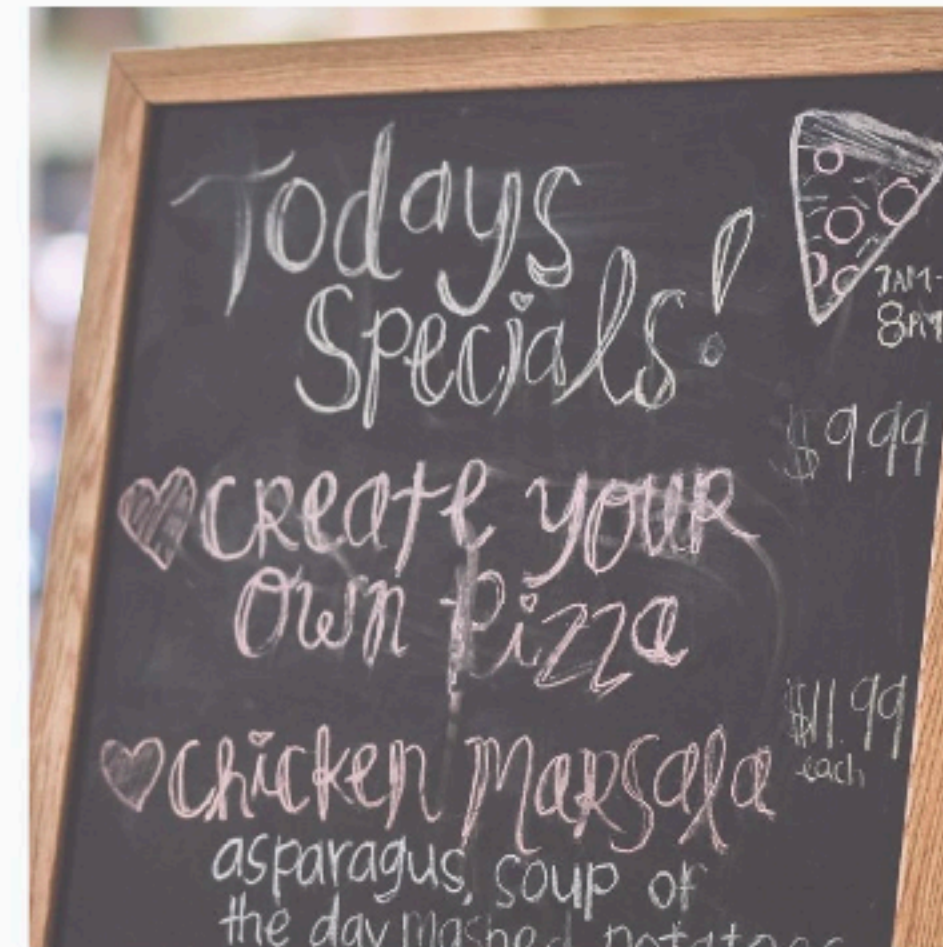 Todays
Specials!
7AM-
8PM
$9.99
create your
own Pizza
$11.99
each
chicken Marsala
asparagus, soup of
the day mashed potatoes